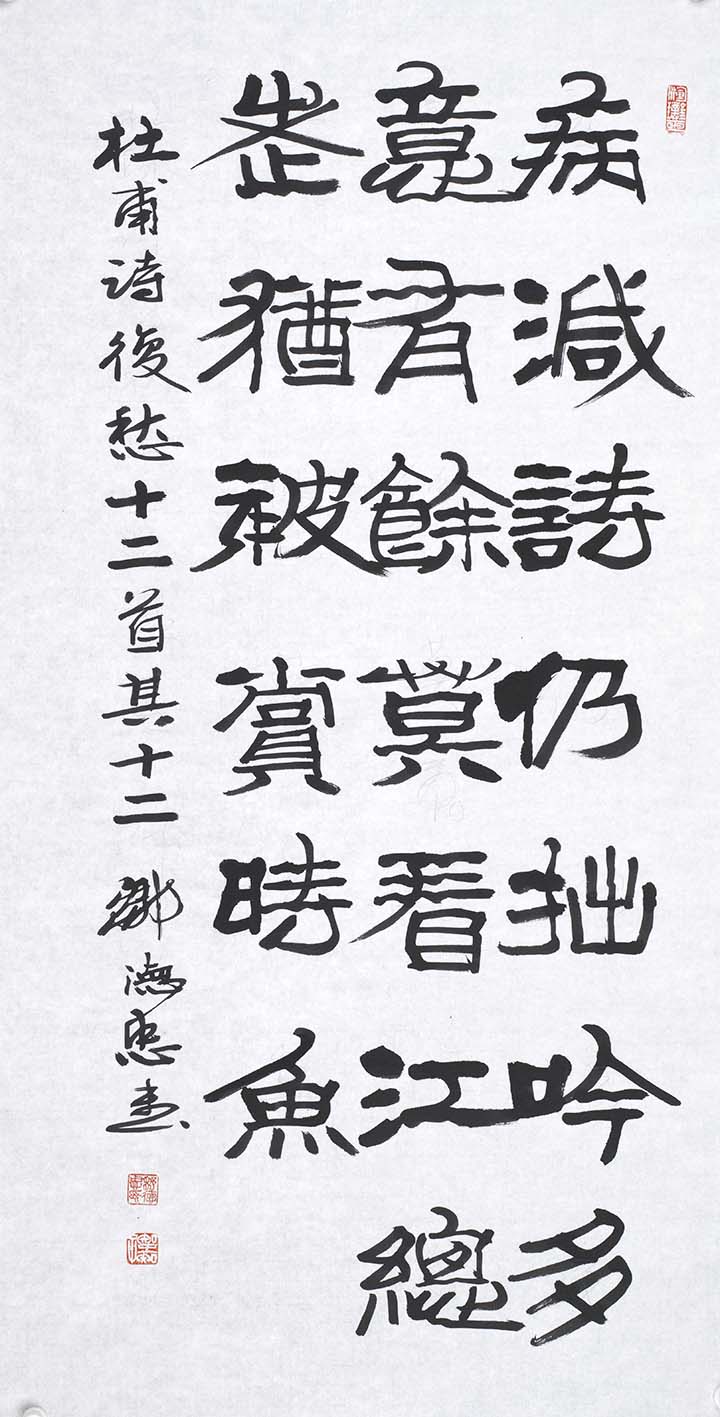 病減詩仍拙吟多
意有餘莫看江總
老猶被賞時魚
杜甫詩復愁十二首其十二 鄧德忠書